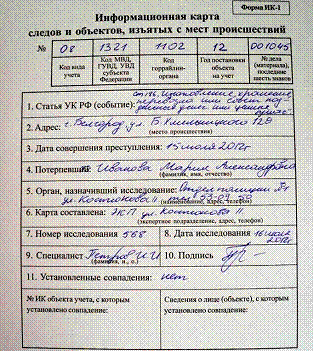 Форма ИК-1
Информационная карта
следов и объектов, изъятых с мест происшествий
№ 08 1321 1102 12 001045
Код вида учета
Код МВД, ГУВД, УВД субъекта Федерации
Код горрайлин-органа
Год постановки объекта на учет
№ дела (материала), последние шесть знаков
1. Статья УК РФ (событие): хранение
перевозка или сбыт
2. Адрес: г. Белгород ул. Б. Хмельницкого 129
(место происшествия)
3. Дата совершения преступления: 15
4. Потерпевший: Иванова Мария Александровна
(фамилия, имя, отчество)
5. Орган, назначивший исследование: Отдел полиции №
ул. Костюкова
(наименование, адрес, телефон)
6. Карта составлена: ЭКП ул. Костюкова
(экспертное подразделение, адрес, телефон)
7. Номер исследования 568
8. Дата исследования 16
9. Специалист Петров И.И
(фамилия, и., о.)
10. Подпись
11. Установленные совпадения: нет
№ ИК объекта учета, с которым установлено совпадение:
Сведения о лице (объекте), с которым установлено совпадение: